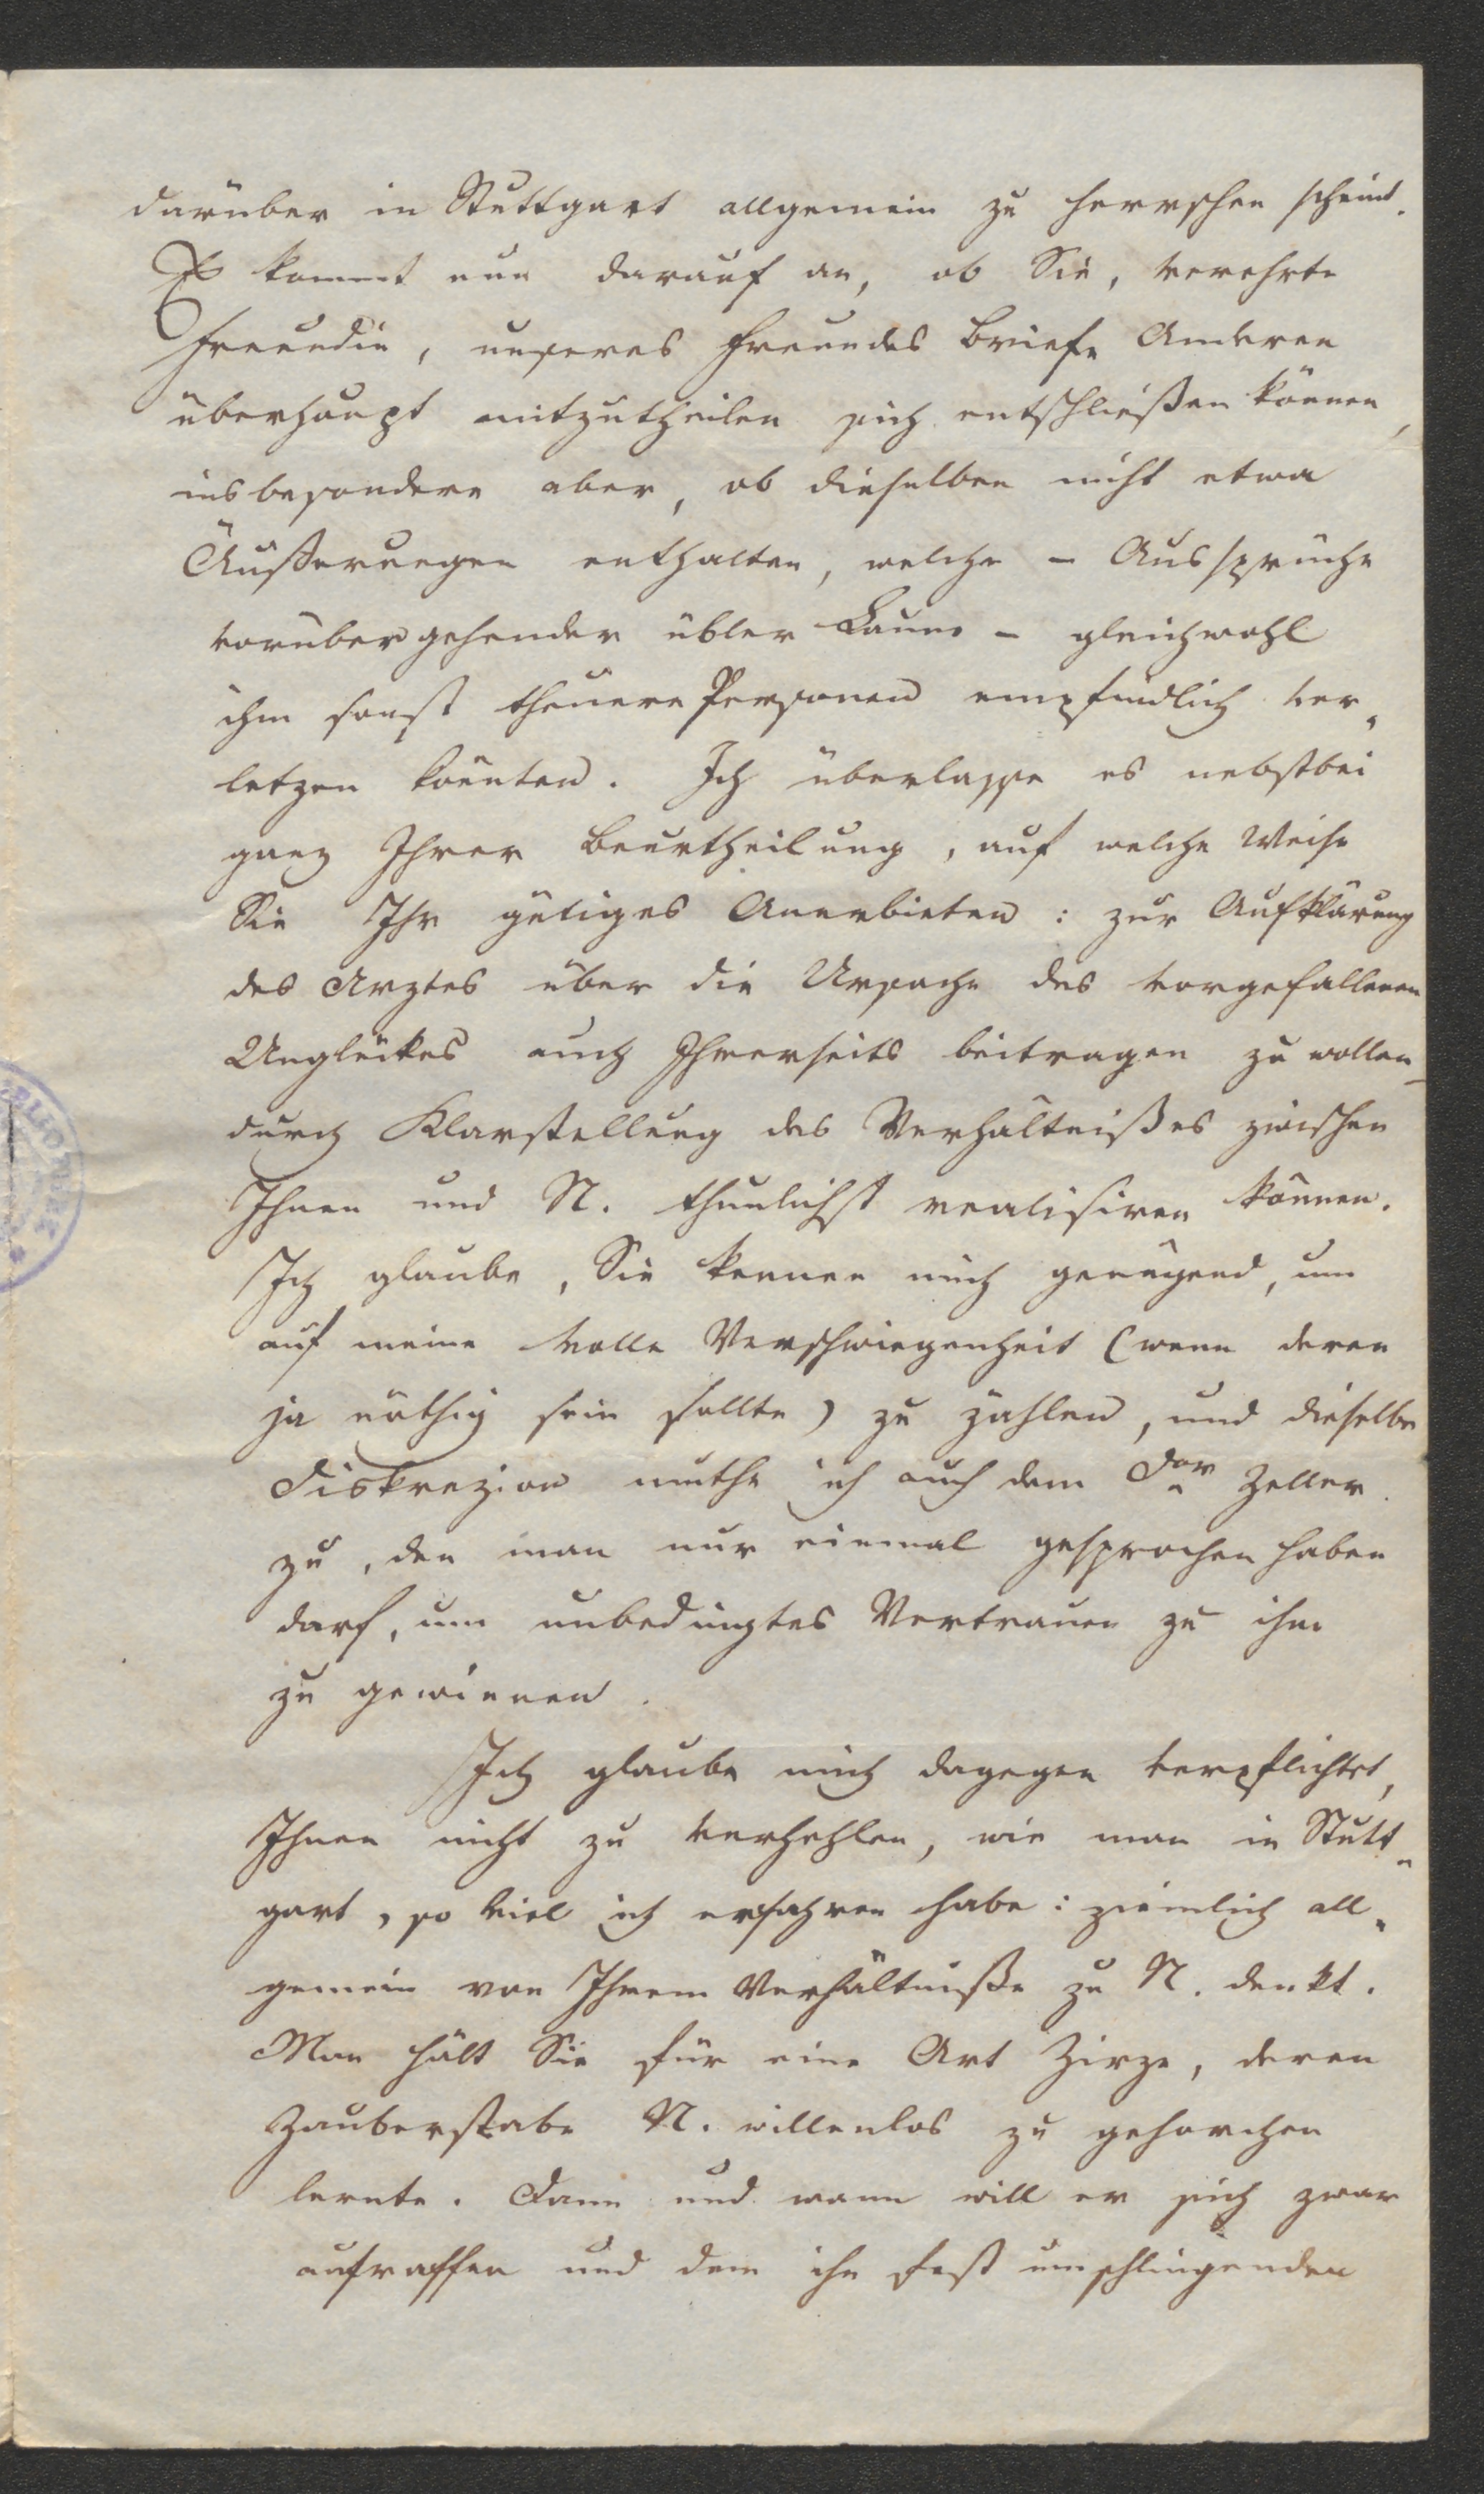 darüber in Stuttgart allgemein zu herrschen scheint.
Es kommt nun darauf an, ob Sie, verehrte
Freundin, unseres Freundes Briefe Anderen
überhaupt mitzutheilen sich entschließen können,
insbesondere aber, ob dieselben nicht etwa
Äußerungen enthalten, welche – Aussprüche
vorübergehender übler Laune – gleichwohl
ihm sonst theuere Personen empfindlich ver„
letzen könnten. Ich überlasse es nebstbei
ganz Ihrer Beurtheilung, auf welche Weise
Sie Ihr gütiges Anerbieten: zur Aufklärung
des Arztes über die Ursache des vorgefallenen
Unglückes auch Ihrerseits beitragen zu wollen –
durch Klarstellung des Verhältnißes zwischen
Ihnen und N. thunlichst realisiren können.
Ich glaube, Sie kennen mich genügend, um
auf meine volle Verschwiegenheit (wenn deren
ja nöthig sein sollte) zu zählen, und dieselbe
Diskrezion muthe ich auch dem Dor Zeller
zu, den man nur einmal gesprochen haben
darf, um unbedingtes Vertrauen zu ihm
zu gewinnen.
Ich glaube mich dagegen verpflichtet,
Ihnen nicht zu verhehlen, wie man in Stutt„
gart, so viel ich erfahren habe: ziemlich all„
gemein von Ihrem Verhältniße zu N. denkt.
Man hält Sie für eine Art Zirze, deren
Zauberstabe N. willenlos zu gehorchen
lernte. Dann und wann will er sich zwar
aufraffen und dem ihn fest umschlingenden